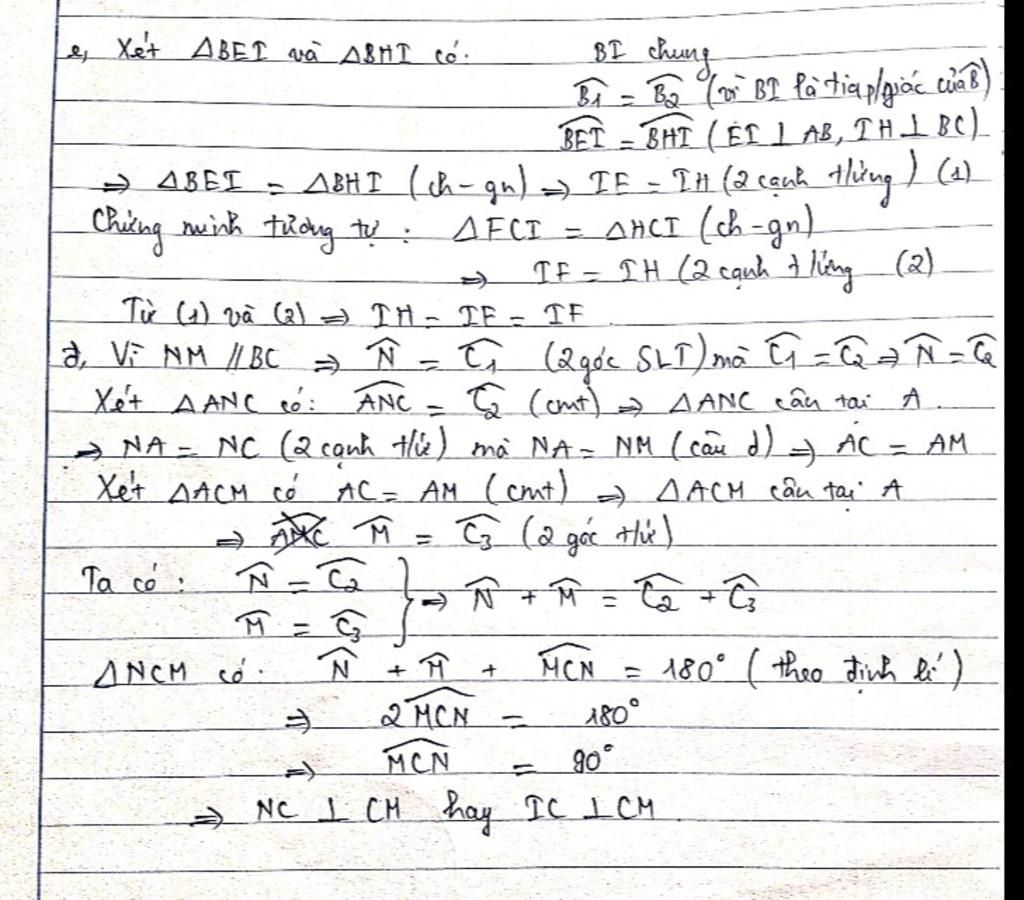 c, Xét ΔBEI và ΔBHI có: BI chung
B̂1 = B̂2 (vì BI là tia p/giác của B̂)
BEI = BHI (EI ⊥ AB, IH ⊥ BC)
⇒ ΔBEI = ΔBHI (ch-gn) ⇒ IE = IH (2 cạnh t/ứng) (1)
Chứng minh tương tự: ΔFCI = ΔHCI (ch-gn)
⇒ IF = IH (2 cạnh t/ứng (2)
Từ (1) và (2) ⇒ IH = IE = IF
d, Vì NM // BC ⇒ N̂ = Ĉ1 (2 góc SLT) mà Ĉ1 = Ĉ2 ⇒ N̂ = Ĉ2
Xét ΔANC có: ANC = Ĉ2 (cmt) ⇒ ΔANC cân tại A.
⇒ NA = NC (2 cạnh t/ứ) mà NA = NM (câu d) ⇒ AC = AM
Xét ΔACM có AC = AM (cmt) ⇒ ΔACM cân tại A
⇒ M̂ = Ĉ3 (2 góc t/ứ)
Ta có: N̂ = Ĉ2 } ⇒ N̂ + M̂ = Ĉ2 + Ĉ3
M̂ = Ĉ3
ΔNCM có: N̂ + M̂ + MCN = 180° (theo định lí)
⇒ 2MCN = 180°
⇒ MCN = 90°
⇒ NC ⊥ CM hay IC ⊥ CM.